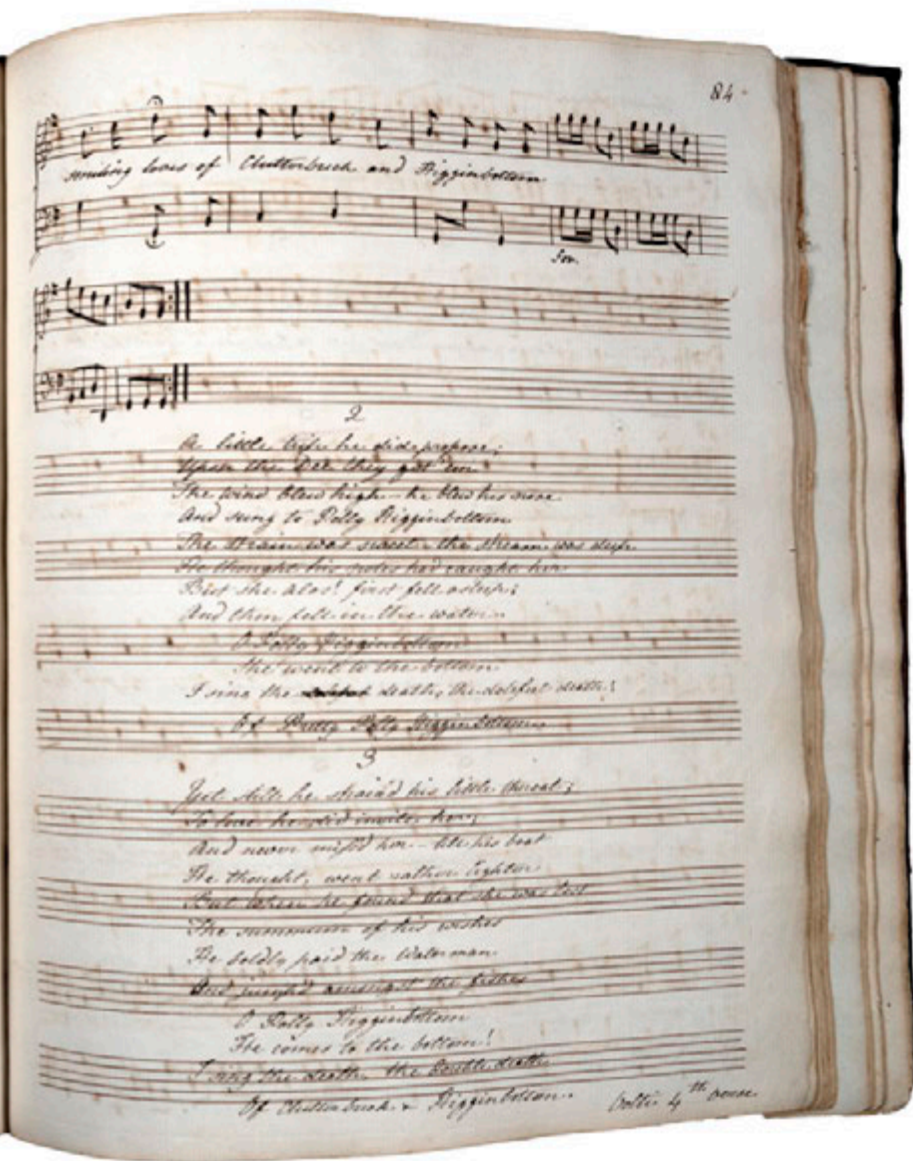 84
smiling loves of Clutterbuck and Higginbottom
For.
2
A little trip he did propose;
Upon the Dee they got 'em
The wind blew high – he blew his nose
And sung to Polly Higginbottom
The strain was sweet – the stream was deep
He thought his notes had caught her
But she alas! first fell asleep;
And then fell in the water.
O Polly Higginbottom
She went to the bottom
I sing the death, the doleful death!
Of Pretty Polly Higginbottom.
3
Yet still he strain'd his little throat;
To love he did invite her;
And never miss'd her – till his boat
He thought, went rather lighter
But when he found that she was lost
The summum of his wishes
He boldly paid the Waterman
And jump'd amongst the fishes
O Polly Higginbottom
He comes to the bottom!
I sing the death, the double death
Of Clutterbuck & Higginbottom.
Volti 4th verse